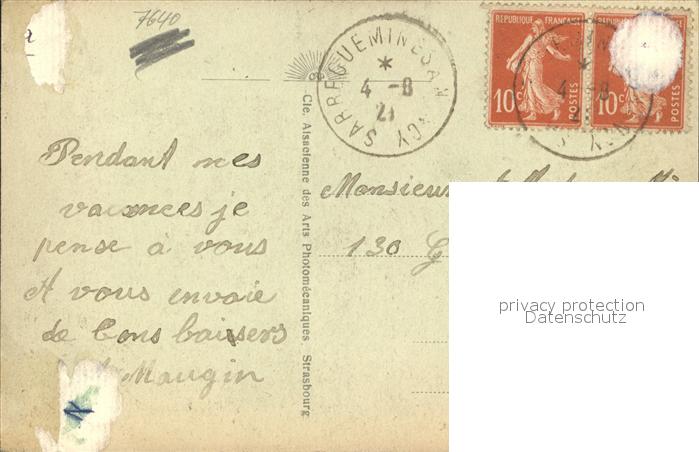 7640
SARREGUEMINES A N CY
*
4 -8
21
REPUBLIQUE FRANÇAISE
10c POSTES
10c POSTES
Cie. Alsacienne des Arts Photomécaniques Strasbourg
Pendant mes
vacances je
pense à vous
et vous envoie
de bons baisers
Maugin
Monsieur
130 G
privacy protection
Datenschutz